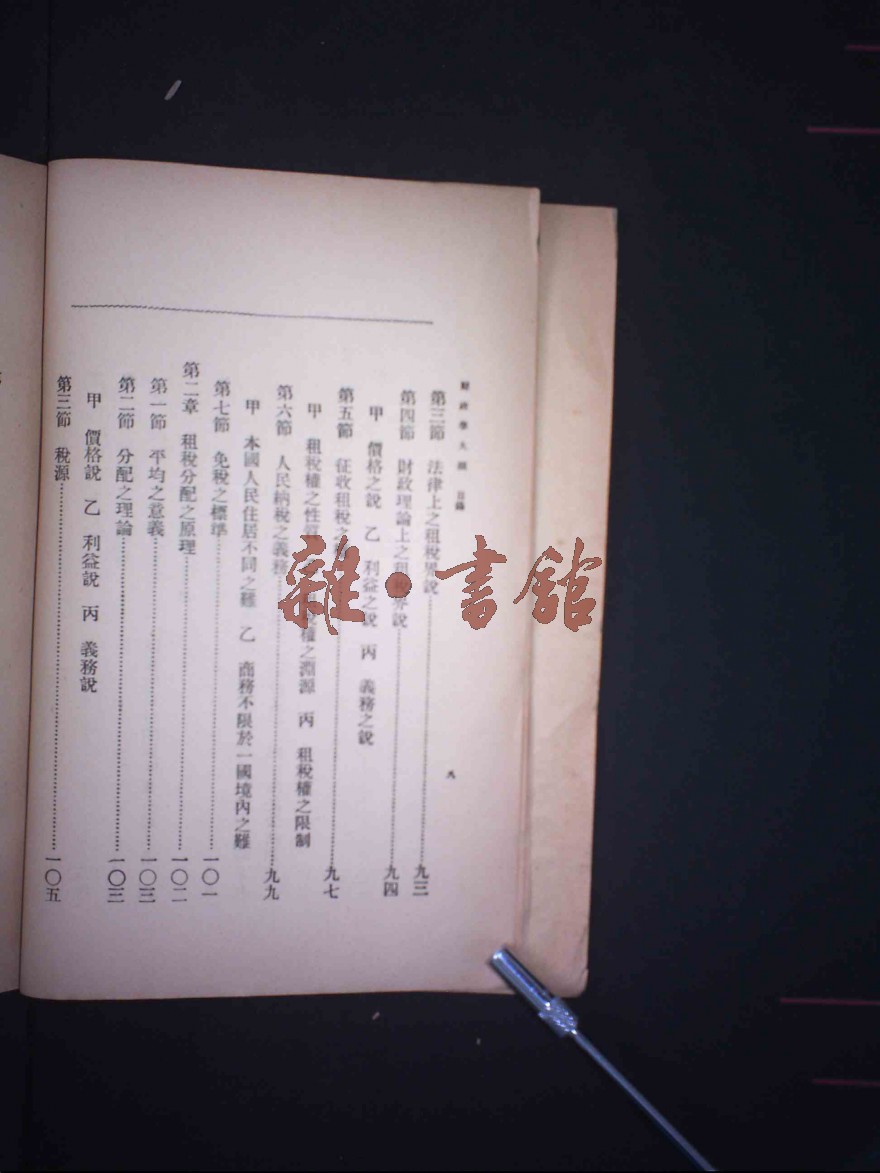 財政學大綱 目錄
九
第三節 法律上之租稅界說……九三
第四節 財政理論上之租稅界說……九四
甲 價格之說 乙 利益之說 丙 義務之說
第五節 征收租稅之……九七
甲 租稅權之性 權之淵源 丙 租稅權之限制
第六節 人民納稅之義務……九九
甲 本國人民住居不同之難 乙 商務不限於一國境內之難
第七節 免稅之標準……一〇一
第二章 租稅分配之原理……一〇二
第一節 平均之意義……一〇三
第二節 分配之理論……一〇三
甲 價格說 乙 利益說 丙 義務說
第三節 稅源……一〇五
雜·書館